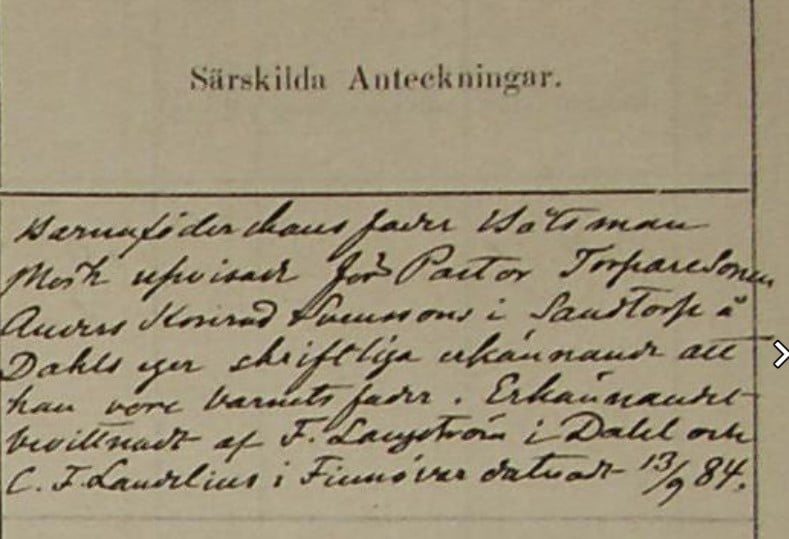 Särskilda Anteckningar.
Barnaföderskans fader Båtsman
Mörk uppvisade för Pastor Torparesonen
Anders Konrad Svenssons i Sandtorp å
Dahls eger skriftliga erkännande att
han vore barnets fader. Erkännandet
bevittnadt af F. Langström i Dahl och
C. F. Landelius i Finnö dateradt 13/9 84.